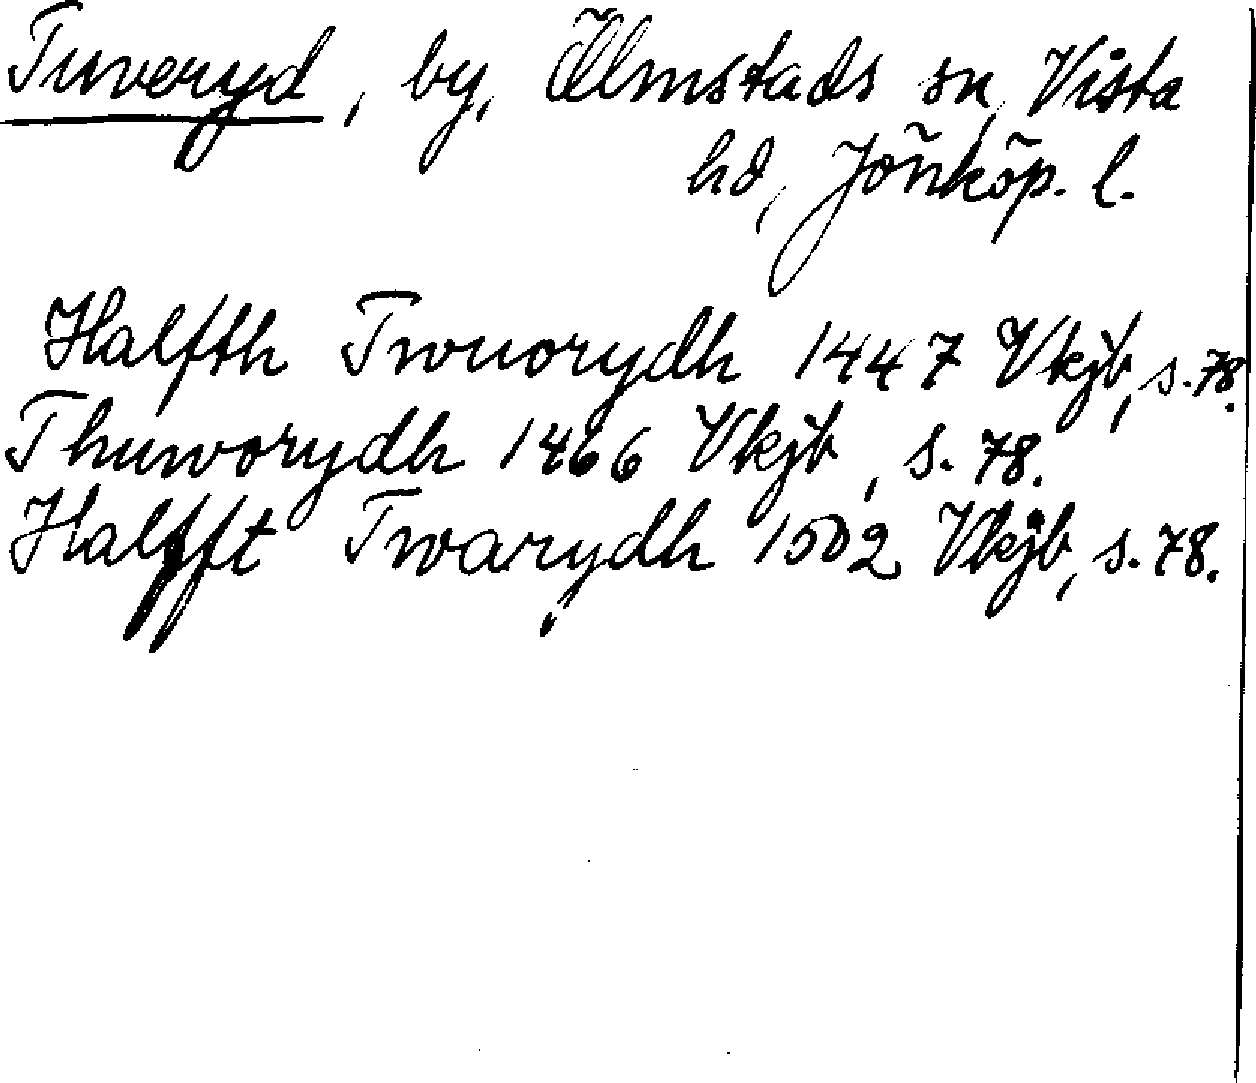 Tuveryd, by, Ölmstads sn, Vista
hd, Jönköp. l.
Halfth Twuorydh 1447 Vkjb, s. 78.
Thuworydh 1466 Vkjb, s. 78.
Halfft Twarydh 1502 Vkjb, s. 78.